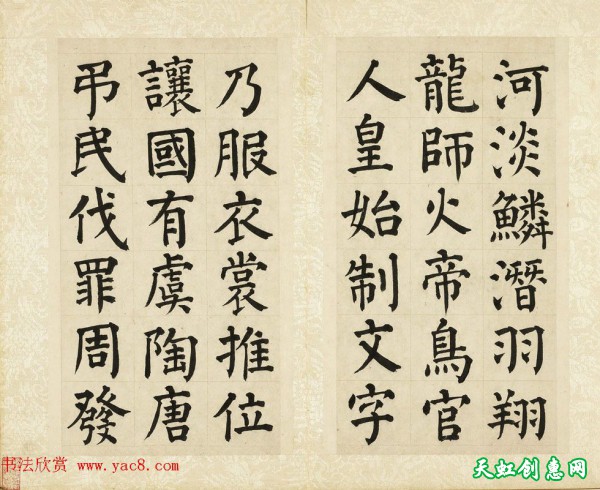 河淡鱗潛羽翔
龍師火帝鳥官
人皇始制文字
乃服衣裳推位
讓國有虞陶唐
弔民伐罪周發
书法欣赏 www.yac8.com
天虹创惠网